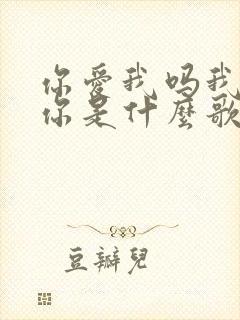 你愛我嗎我
你是什麼歌
豆瓣兒